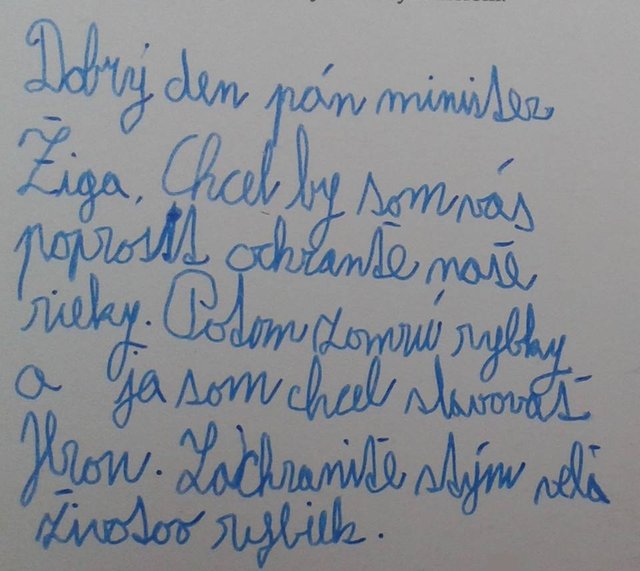 Dobrý den pán minister
Žiga. Chcel by som vás
poprosit ochrante naše
rieky. Potom zomrú rybky
a ja som chcel slavovať
Hron. Zachranite stým velà
životov rybiek.